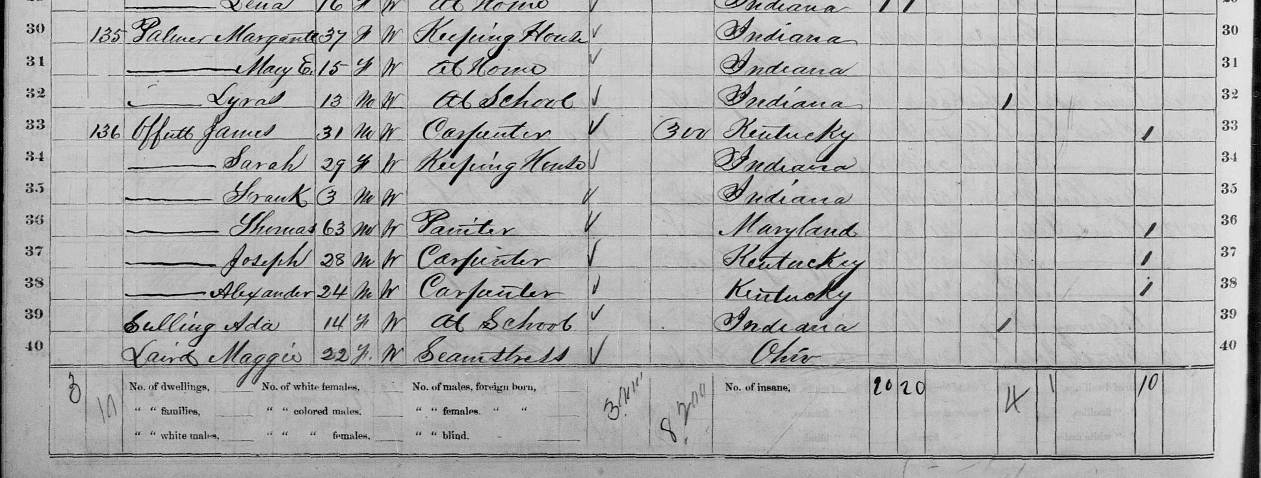 Lena 16 F W At Home Indiana 1 1
30 135 Palmer Margarete 37 F W Keeping House √ Indiana 30
31 —— Mary E. 15 F W At Home √ Indiana 31
32 —— Lyras 13 M W At School √ Indiana 1 32
33 136 Offutt James 31 M W Carpenter √ 300 Kentucky 1 33
34 —— Sarah 29 F W Keeping House √ Indiana 34
35 —— Frank 3 M W √ Indiana 35
36 —— Thomas 63 M W Painter √ Maryland 1 36
37 —— Joseph 28 M W Carpenter √ Kentuckey 1 37
38 —— Alexander 24 M W Carpenter √ Kentucky 1 38
39 Sulling Ada 14 F W At School √ Indiana 1 39
40 Laird Maggie 22 F. W Seamstress √ Ohio 40
3 No. of dwellings, No. of white females, No. of males, foreign born, No. of insane, 20 20 4 1 10
" " families, " " colored males, " " females, " "
" " white males, " " " females, " " blind.